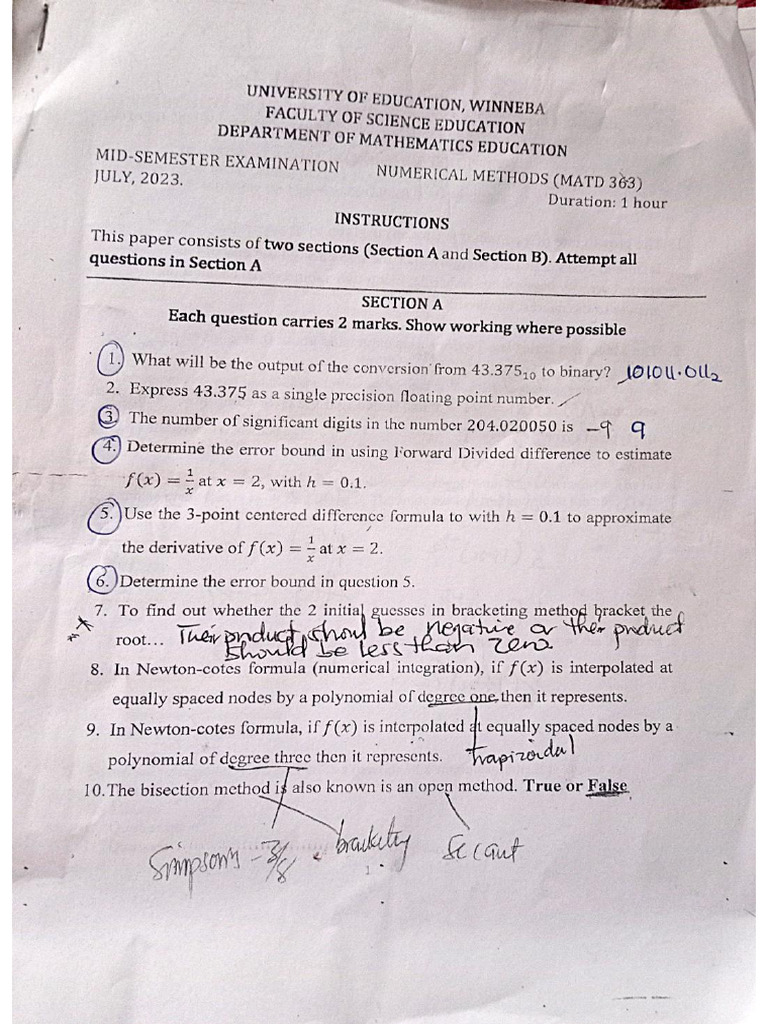 UNIVERSITY OF EDUCATION, WINNEBA
FACULTY OF SCIENCE EDUCATION
DEPARTMENT OF MATHEMATICS EDUCATION
MID-SEMESTER EXAMINATION NUMERICAL METHODS (MATD 363)
JULY, 2023.
Duration: 1 hour
INSTRUCTIONS
This paper consists of two sections (Section A and Section B). Attempt all
questions in Section A
SECTION A
Each question carries 2 marks. Show working where possible
1. What will be the output of the conversion from 43.375₁₀ to binary? 101011.011₂
2. Express 43.375 as a single precision floating point number.
3. The number of significant digits in the number 204.020050 is –9 9
4. Determine the error bound in using Forward Divided difference to estimate
f(x) = 1/x at x = 2, with h = 0.1.
5. Use the 3-point centered difference formula to with h = 0.1 to approximate
the derivative of f(x) = 1/x at x = 2.
6. Determine the error bound in question 5.
7. To find out whether the 2 initial guesses in bracketing method bracket the
root... Their product shoul be negative or their product
should be less than zero
8. In Newton-cotes formula (numerical integration), if f(x) is interpolated at
equally spaced nodes by a polynomial of degree one, then it represents.
9. In Newton-cotes formula, if f(x) is interpolated at equally spaced nodes by a
polynomial of degree three then it represents. trapizoidal
10. The bisection method is also known is an open method. True or False
Simpson's - 3/8 brackety Secant
1